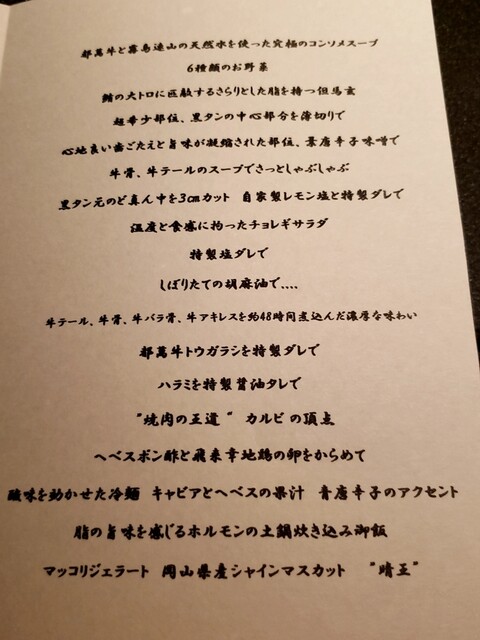 都萬牛と霧島連山の天然水を使った究極のコンソメスープ
6種類のお野菜
鮪の大トロに匹敵するさらりとした脂を持つ但馬玄
超希少部位、黒タンの中心部分を薄切りで
心地良い歯ごたえと旨味が凝縮された部位、葉唐辛子味噌で
牛骨、牛テールのスープでさっとしゃぶしゃぶ
黒タン元のど真ん中を3㎝カット 自家製レモン塩と特製ダレで
温度と食感に拘ったチョレギサラダ
特製塩ダレで
しぼりたての胡麻油で....
牛テール、牛骨、牛バラ骨、牛アキレスを約48時間煮込んだ濃厚な味わい
都萬牛トウガラシを特製ダレで
ハラミを特製醤油タレで
"焼肉の王道" カルビの頂点
ヘベスポン酢と飛来幸地鶏の卵をからめて
酸味を効かせた冷麺 キャビアとヘベスの果汁 青唐辛子のアクセント
脂の旨味を感じるホルモンの土鍋炊き込み御飯
マッコリジェラート 岡山県産シャインマスカット "晴王"